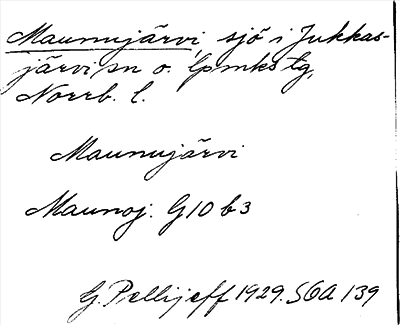 Maunujärvi, sjö i Jukkas-
järvi sn o. lpmks tg,
Norrb. l.
Maunujärvi
Maunoj. G10 b3
G. Pellijeff 1929. SOA 139